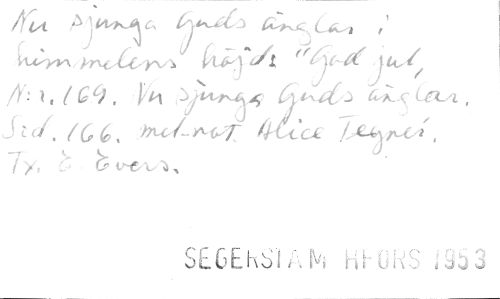 Nu sjunga Guds änglar i
himmelens höjd: "God jul,
N:r. 169. Nu sjunga Guds änglar.
Sid. 166. mel-not. Alice Tegnér.
Tx. E. Evers.
SEGERSTAM HFORS 1953